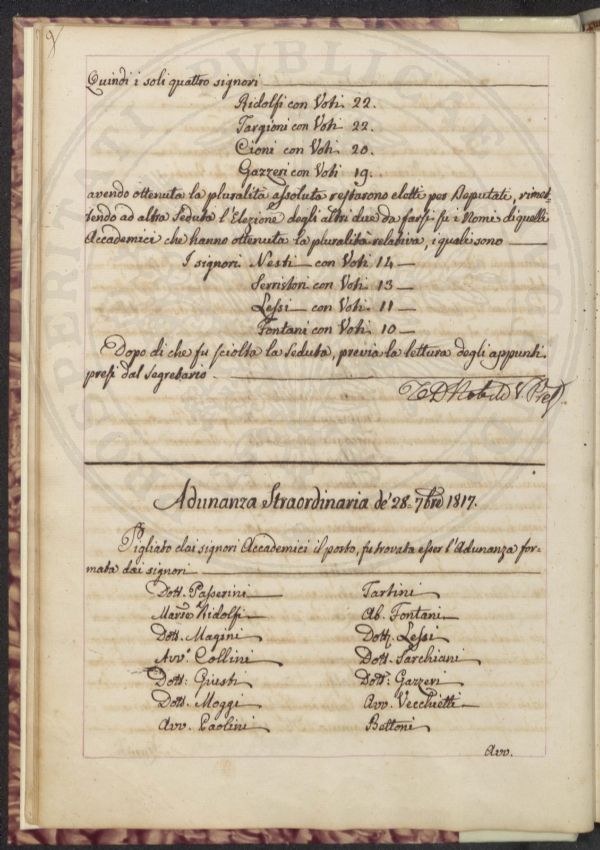 Quindi i soli quattro signori
Ridolfi con Voti 22.
Targioni con Voti 22.
Cioni con Voti 20.
Gazzeri con Voti 19.
avendo ottenuta la pluralità assoluta restarono eletti per Deputati, rimet-
tendo ad altra Seduta l'Elezione degli altri due da farsi fu i Nomi di quelli
Accademici che hanno ottenuta la pluralità relativa, i quali sono
I signori Nesti con Voti 14
Serristori con Voti 13
Lessi con Voti 11
Fontani con Voti 10
Dopo di che fu sciolta la seduta, previa la lettura degli appunti
presi dal segretario
Adunanza Straordinaria de' 28. 7bre 1817.
Pigliato dai signori Accademici il posto, fu trovata esser l'Adunanza for-
mata dai signori
Dott. Passerini Tartini
March. Ridolfi Ab. Fontani
Dott. Magini Dott. Lessi
Avv.o Collini Dott. Sarchiani
Dott: Giusti Dott: Gazzeri
Dott. Moggi Avv. Vecchietti
Avv. Paolini Bettoni
Avv.
PROSPERITATI PUBLICAE